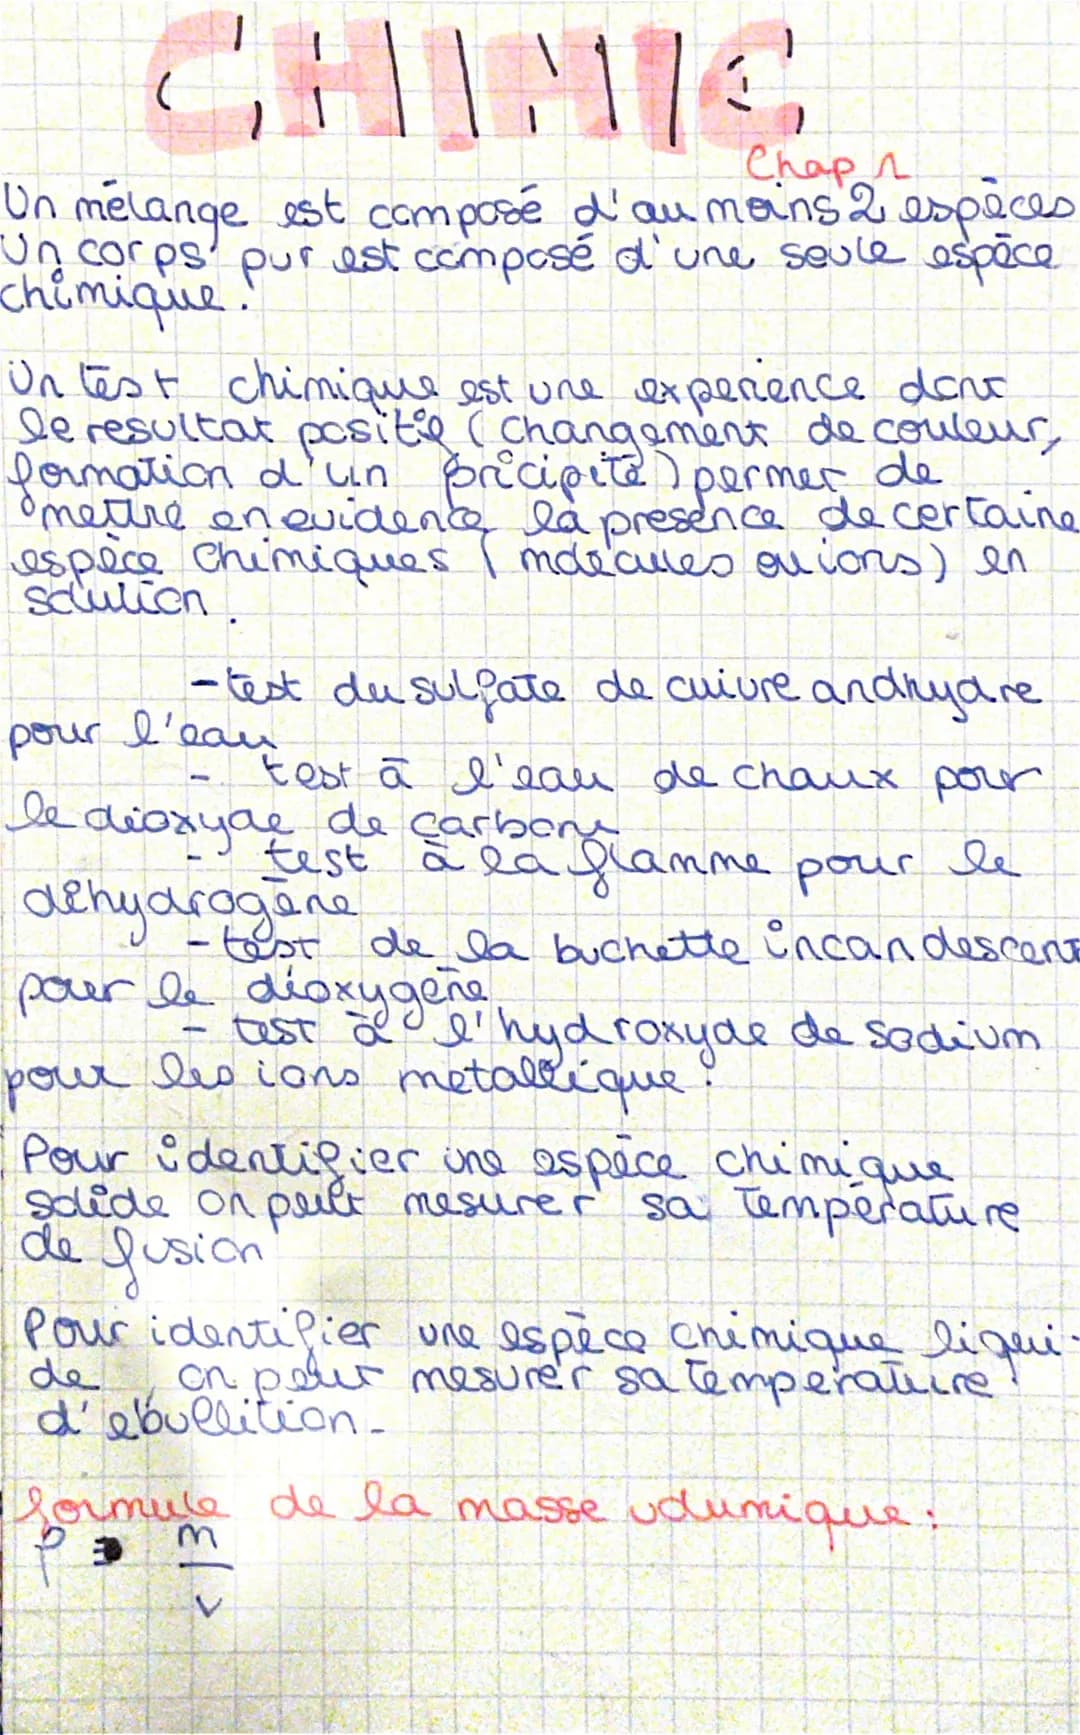 CHIMIE
Chap 1
Un mélange est composé d'au moins 2 espèces
Un corps pur est composé d'une seule espèce
chimique.
Un test chimique est une experience dont
le resultat positif (changement de couleur,
formation d'un pricipité) permet de
mettre en evidence la présence de certaine
espèce chimiques (molécules ou ions) en
solution.
- test du sulfate de cuivre andhydre
pour l'eau
- test à l'eau de chaux pour
le dioxyde de carbone
- test à la flamme pour le
dihydrogène
- test de la buchette incandescent
pour le dioxygène
- test à l'hydroxyde de sodium
pour les ions métallique.
Pour identifier une espèce chimique
solide on peut mesurer sa température
de fusion
Pour identifier une espèce chimique liqui-
de, on peut mesurer sa température
d'ébullition.
formule de la masse volumique :
ρ = m
v